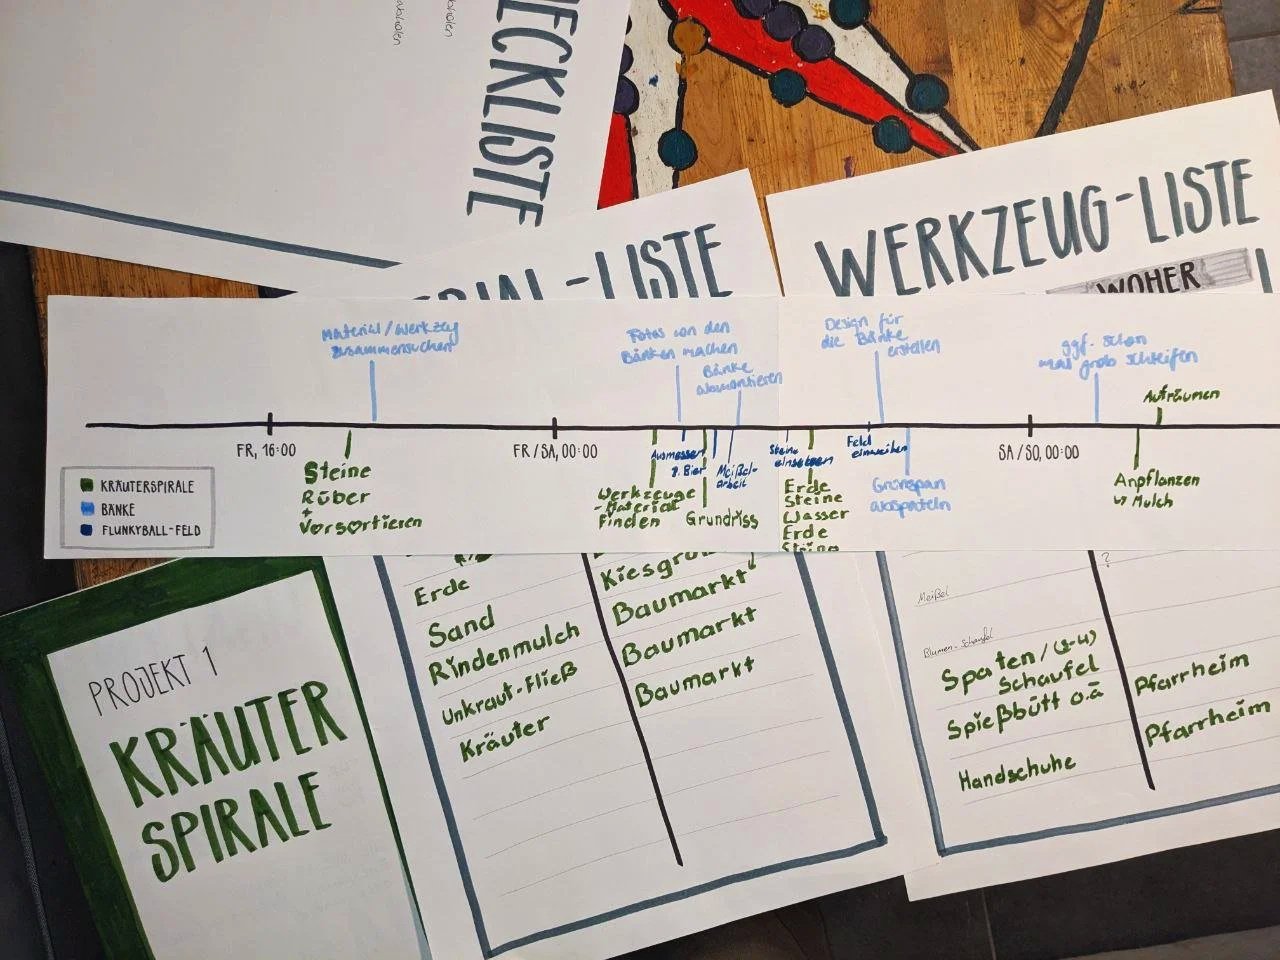 abholen
abholen
ECKLISTE
-LISTE
WERKZEUG-LISTE
WOHER
Material/Werkzeug
zusammensuchen
Fotos von den
Bänken machen
Bänke
abmontieren
Design für
die Bänke
erstellen
ggf. schon
mal grob schleifen
Aufräumen
FR, 16:00
FR/SA, 00:00
SA/SO, 00:00
Steine
Rüber
+
Vorsortieren
Werkzeuge
-Material
Finden
Ausmessen
Grundriss
Meißel-
arbeit
Steine
einsetzen
Erde
Steine
Wasser
Erde
Steine
Feld
einweihen
Grünspan
abspateln
Anpflanzen
↳ Mulch
KRÄUTERSPIRALE
BÄNKE
FLUNKYBALL-FELD
PROJEKT 1
KRÄUTER
SPIRALE
Erde
Sand
Rindenmulch
Unkraut-Fließ
Kräuter
Baumarkt
Baumarkt
Baumarkt
?
Meißel
Blumen-Schaufel
Spaten/(3-4)
Schaufel
Spießbütt o.ä
Handschuhe
Pfarrheim
Pfarrheim